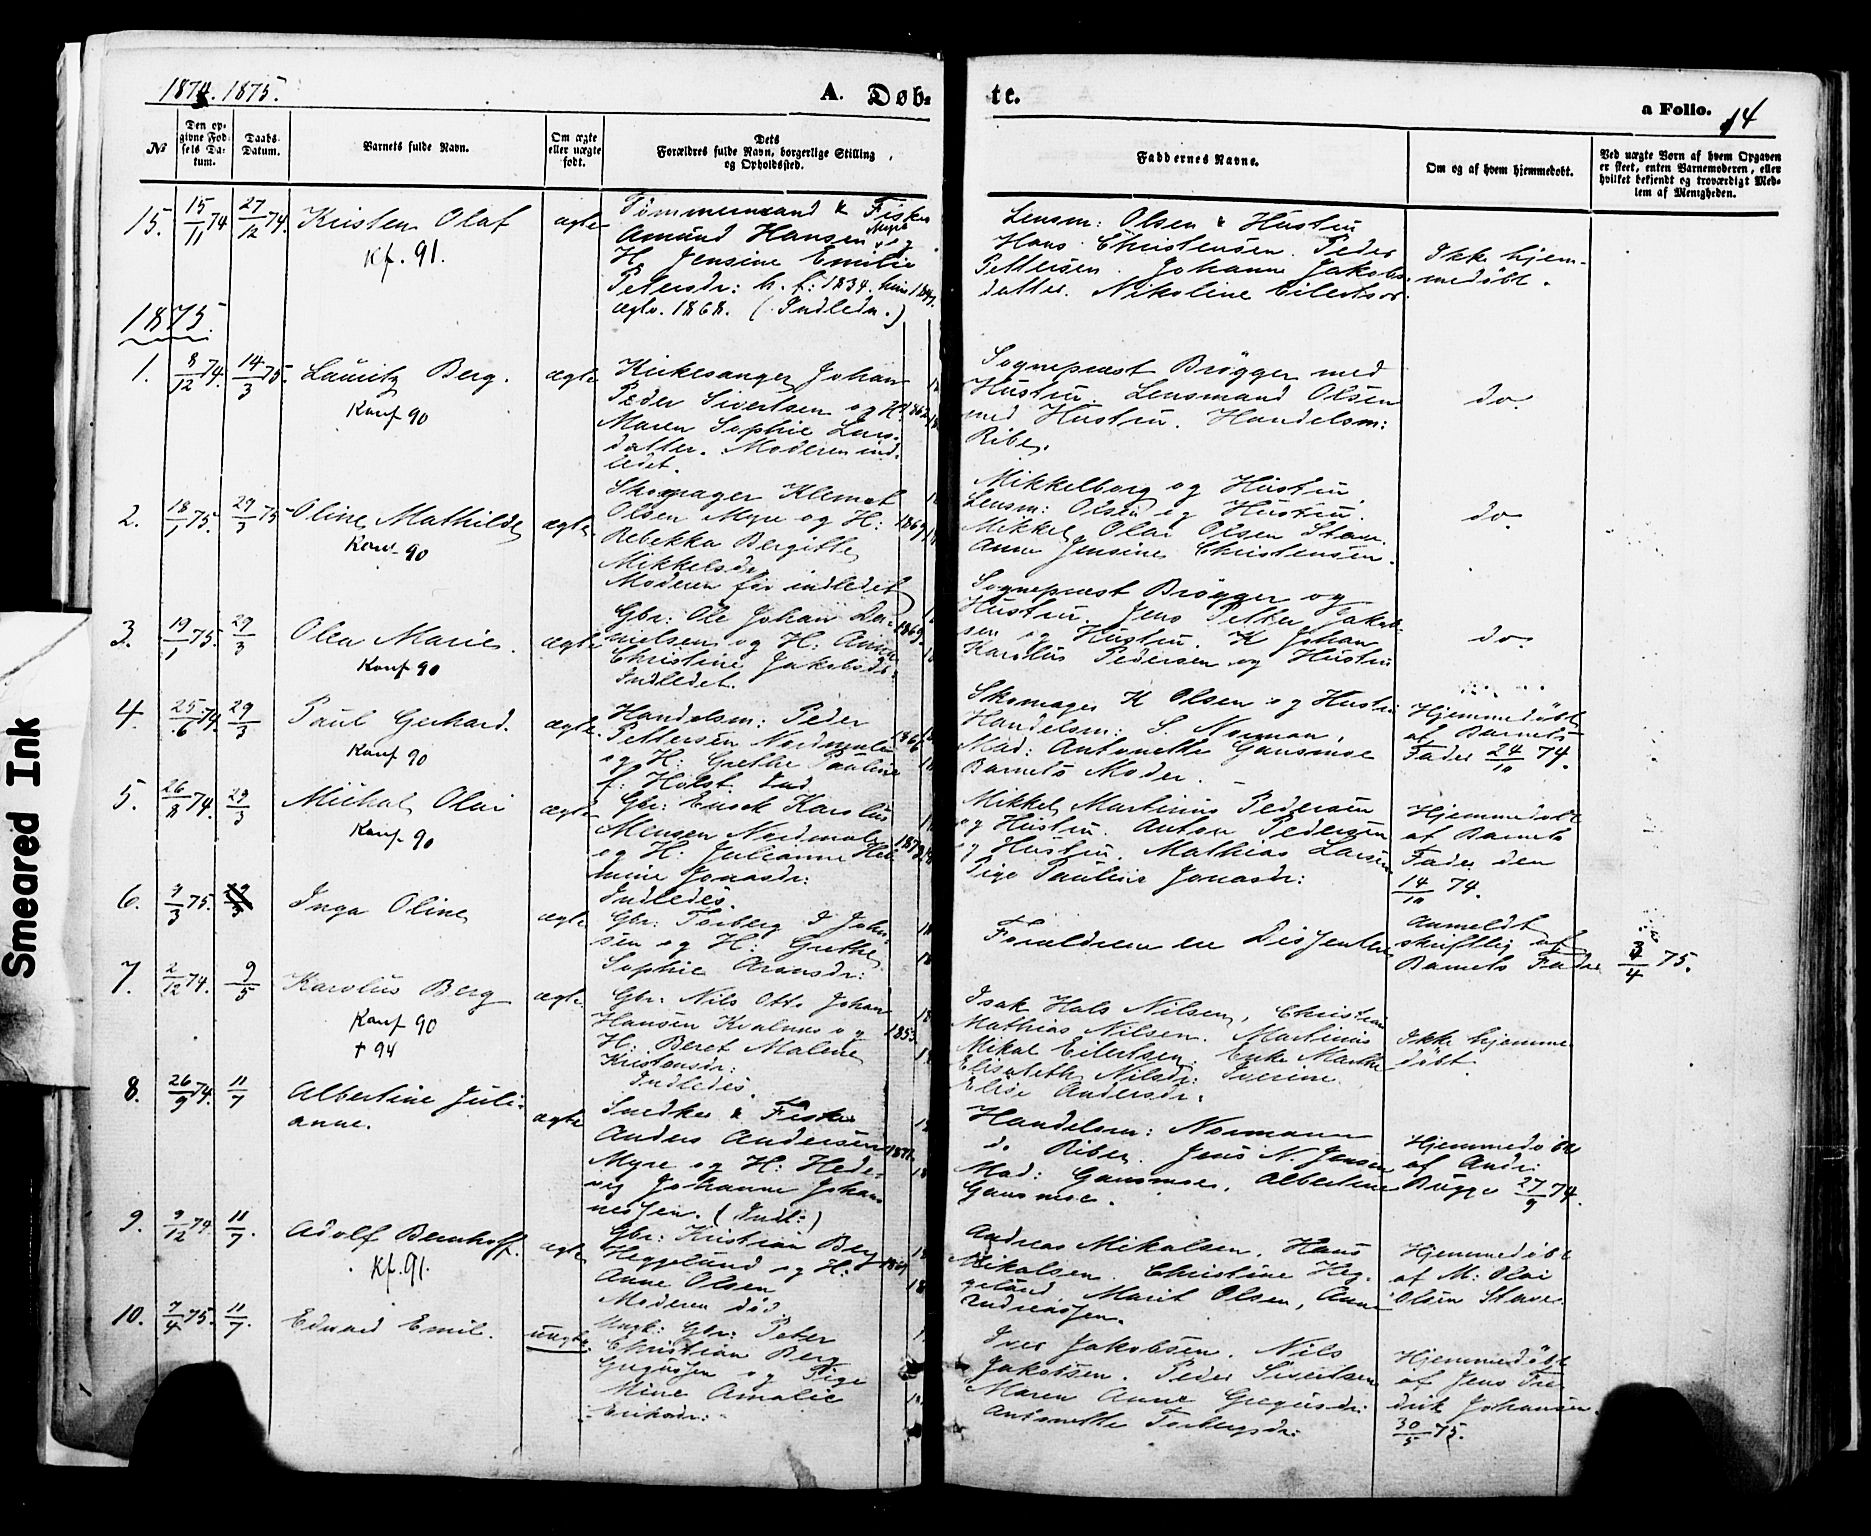 1874. 1875.
A. Døb-
te.
a Folio. 14
№
Den op-
givne Fød-
sels Da-
tum.
Daabs-
Datum.
Barnets fulde Navn.
Om ægte
eller uægte
født.
Dets
Forældres fulde Navn, borgerlige Stilling
og Opholdssted.
Faddernes Navne.
Om og af hvem hjemmedøbt.
Ved uægte Børn af hvem Opgaven
er skeet, enten Barnemoderen, eller
hvilket bekjendt og troværdigt Med-
lem af Menigheden.
15. 15/11 74 27/12 74. Kristen Olaf
Kf. 91.
ægte
Tømmermand & Fisker
Amund Hansen Myre og
H. Jensine Emilie
Petersdr: h. f: 1834.
ægtv. 1868. (Indledn.)
Lensm: Olsen & Hustru
Hans Christensen. Peder
Pettersen. Johanne Jakobs-
datter. Nikoline Eilertsdr.
Ikke hjem-
medøbt.
1875.
1. 8/12 74. 14/3 75. Lauritz Berg.
Konf 90
ægte
Kirkesanger Johan
Peder Sivertsen og H. 1862
Maren Sophie Lars-
datter. Moderen ind-
ledet.
Sognepræst Brøgger med
Hustru. Lensmand Olsen
med Hustru. Handelsm:
Riber.
do.
2. 18/1 75. 29/3 75 Oline Mathilde
Konf 90
ægte.
Skomager Klemet
Olsen Myre og H: 1869
Rebekka Bergitte
Mikkelsdr.
Moderen før indledet
Mikkelborg og Hustru.
Lensm: Olsen og Hustru.
Mikkel Olai Olsen Stave.
Anne Jensine Christensen.
do.
3. 19/1 75. 29/3 Olea Marie.
Konf 90
ægte
Gbr: Ole Johan Da-
nielsen og H: Anne 1869
Christine Jakobsdr.
Indledet.
Sognepræst Brøgger og
Hustru. Jens Petter Jakob-
sen og Hustru. K Johan
Karolus Pedersen og Hustru
do.
4. 25/6 74. 29/3 Paul Gerhard.
Konf 90
ægte.
Handelsm: Peder
Pettersen Nordmelen 1866
og H: Grethe Pauline
f. Holst. Ind
Skomager K Olsen og Hustru
Handelsm: S. Norman.
Mad: Antonette Gausmoe
Barnets Moder.
Hjemmedøbt
af Barnets
Fader 24/10 74.
5. 26/8 74. 29/3 Michal Olai
Konf 90
ægte
Gbr: Enok Karolus
Mensen Nordmele 1873
og H: Julianne Hel-
mine Jonasdr:
Indledes.
Mikkel Martinus Pedersen
og Hustru. Anton Pedersen
og Hustru. Mathias Larsen
Pige Pauline Jonasdr:
Hjemmedøbt
af Barnets
Fader den
14/10 74.
6. 9/3 75. Inga Oline
ægte
Gbr: Torberg D John-
sen og H: Grethe
Sophie Aronsdr:
Forældrene ere Dissentere
Anmeldt
skriftlig af
Barnets Fader 3/4 75.
7. 2/12 74. 9/5 Karolus Berg
Konf 90
† 94
ægte
Gbr: Nils Otto Johan
Hansen Kvalnes og 1853
H: Beret Malene
Kristensdr:
Indledes.
Isak Hals Nilsen, Christian
Mathias Nilsen. Martinus
Mikal Eilertsen. Enke Marthe
Elisabeth Nilsdr: Iverine
Elise Andersdr.
Ikke hjemme
døbt.
8. 26/9 74. 11/7 Albertine Juli-
anne.
ægte
Snedker & Fisker
Anders Andersen 1871.
Myre og H: Hede-
vig Johanne Johan-
nessen. (Indl:)
Handelsm: Normann
do Riber. Jens N. Jensen
Mad: Gausmoe, Albertine
Gausmoe.
Hjemmedøbt
af Andr:
Bugge 27/9 74.
9. 9/12 74 11/7. Adolf Bernhoff.
Kf. 91.
ægte
Gbr: Kristian Berg
Heggelund og H:
Anne Olsen
Moderen død.
Andreas Mikalsen. Hans
Mikalsen. Christine Heg-
gelund, Marit Olsen, Anne
Andreassen.
Hjemmedøbt
af M: Olai
Olsen Stave.
10. 7/4 75. 11/7. Edvard Emil.
uægte.
Ungk: Gbr: Peter
Christian Berg
Gregussen og Pige
Mine Amalie
Eriksdr:
Iver Jakobsen. Nils
Jakobsen. Peder Sivertsen
Maren Anne Gregusdr:
Antonette Torbergsdr:
Hjemmedøbt
af Jens Fre-
drik Johansen.
30/5 75.
Smeared Ink